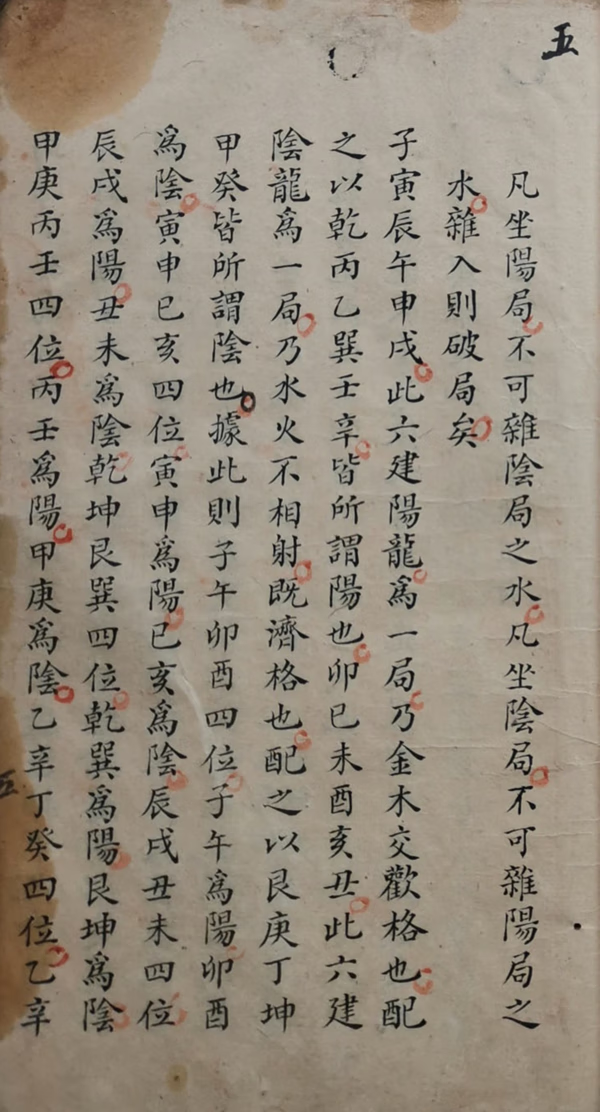 五
凡坐陽局不可雜陰局之水凡坐陰局不可雜陽局之
水雜入則破局矣
子寅辰午申戌此六建陽龍爲一局乃金木交歡格也配
之以乾丙乙巽壬辛皆所謂陽也卯巳未酉亥丑此六建
陰龍爲一局乃水火不相射既濟格也配之以艮庚丁坤
甲癸皆所謂陰也據此則子午卯酉四位子午爲陽卯酉
爲陰寅申巳亥四位寅申爲陽巳亥爲陰辰戌丑未四位
辰戌爲陽丑未爲陰乾坤艮巽四位乾巽爲陽艮坤爲陰
甲庚丙壬四位丙壬爲陽甲庚爲陰乙辛丁癸四位乙辛
五